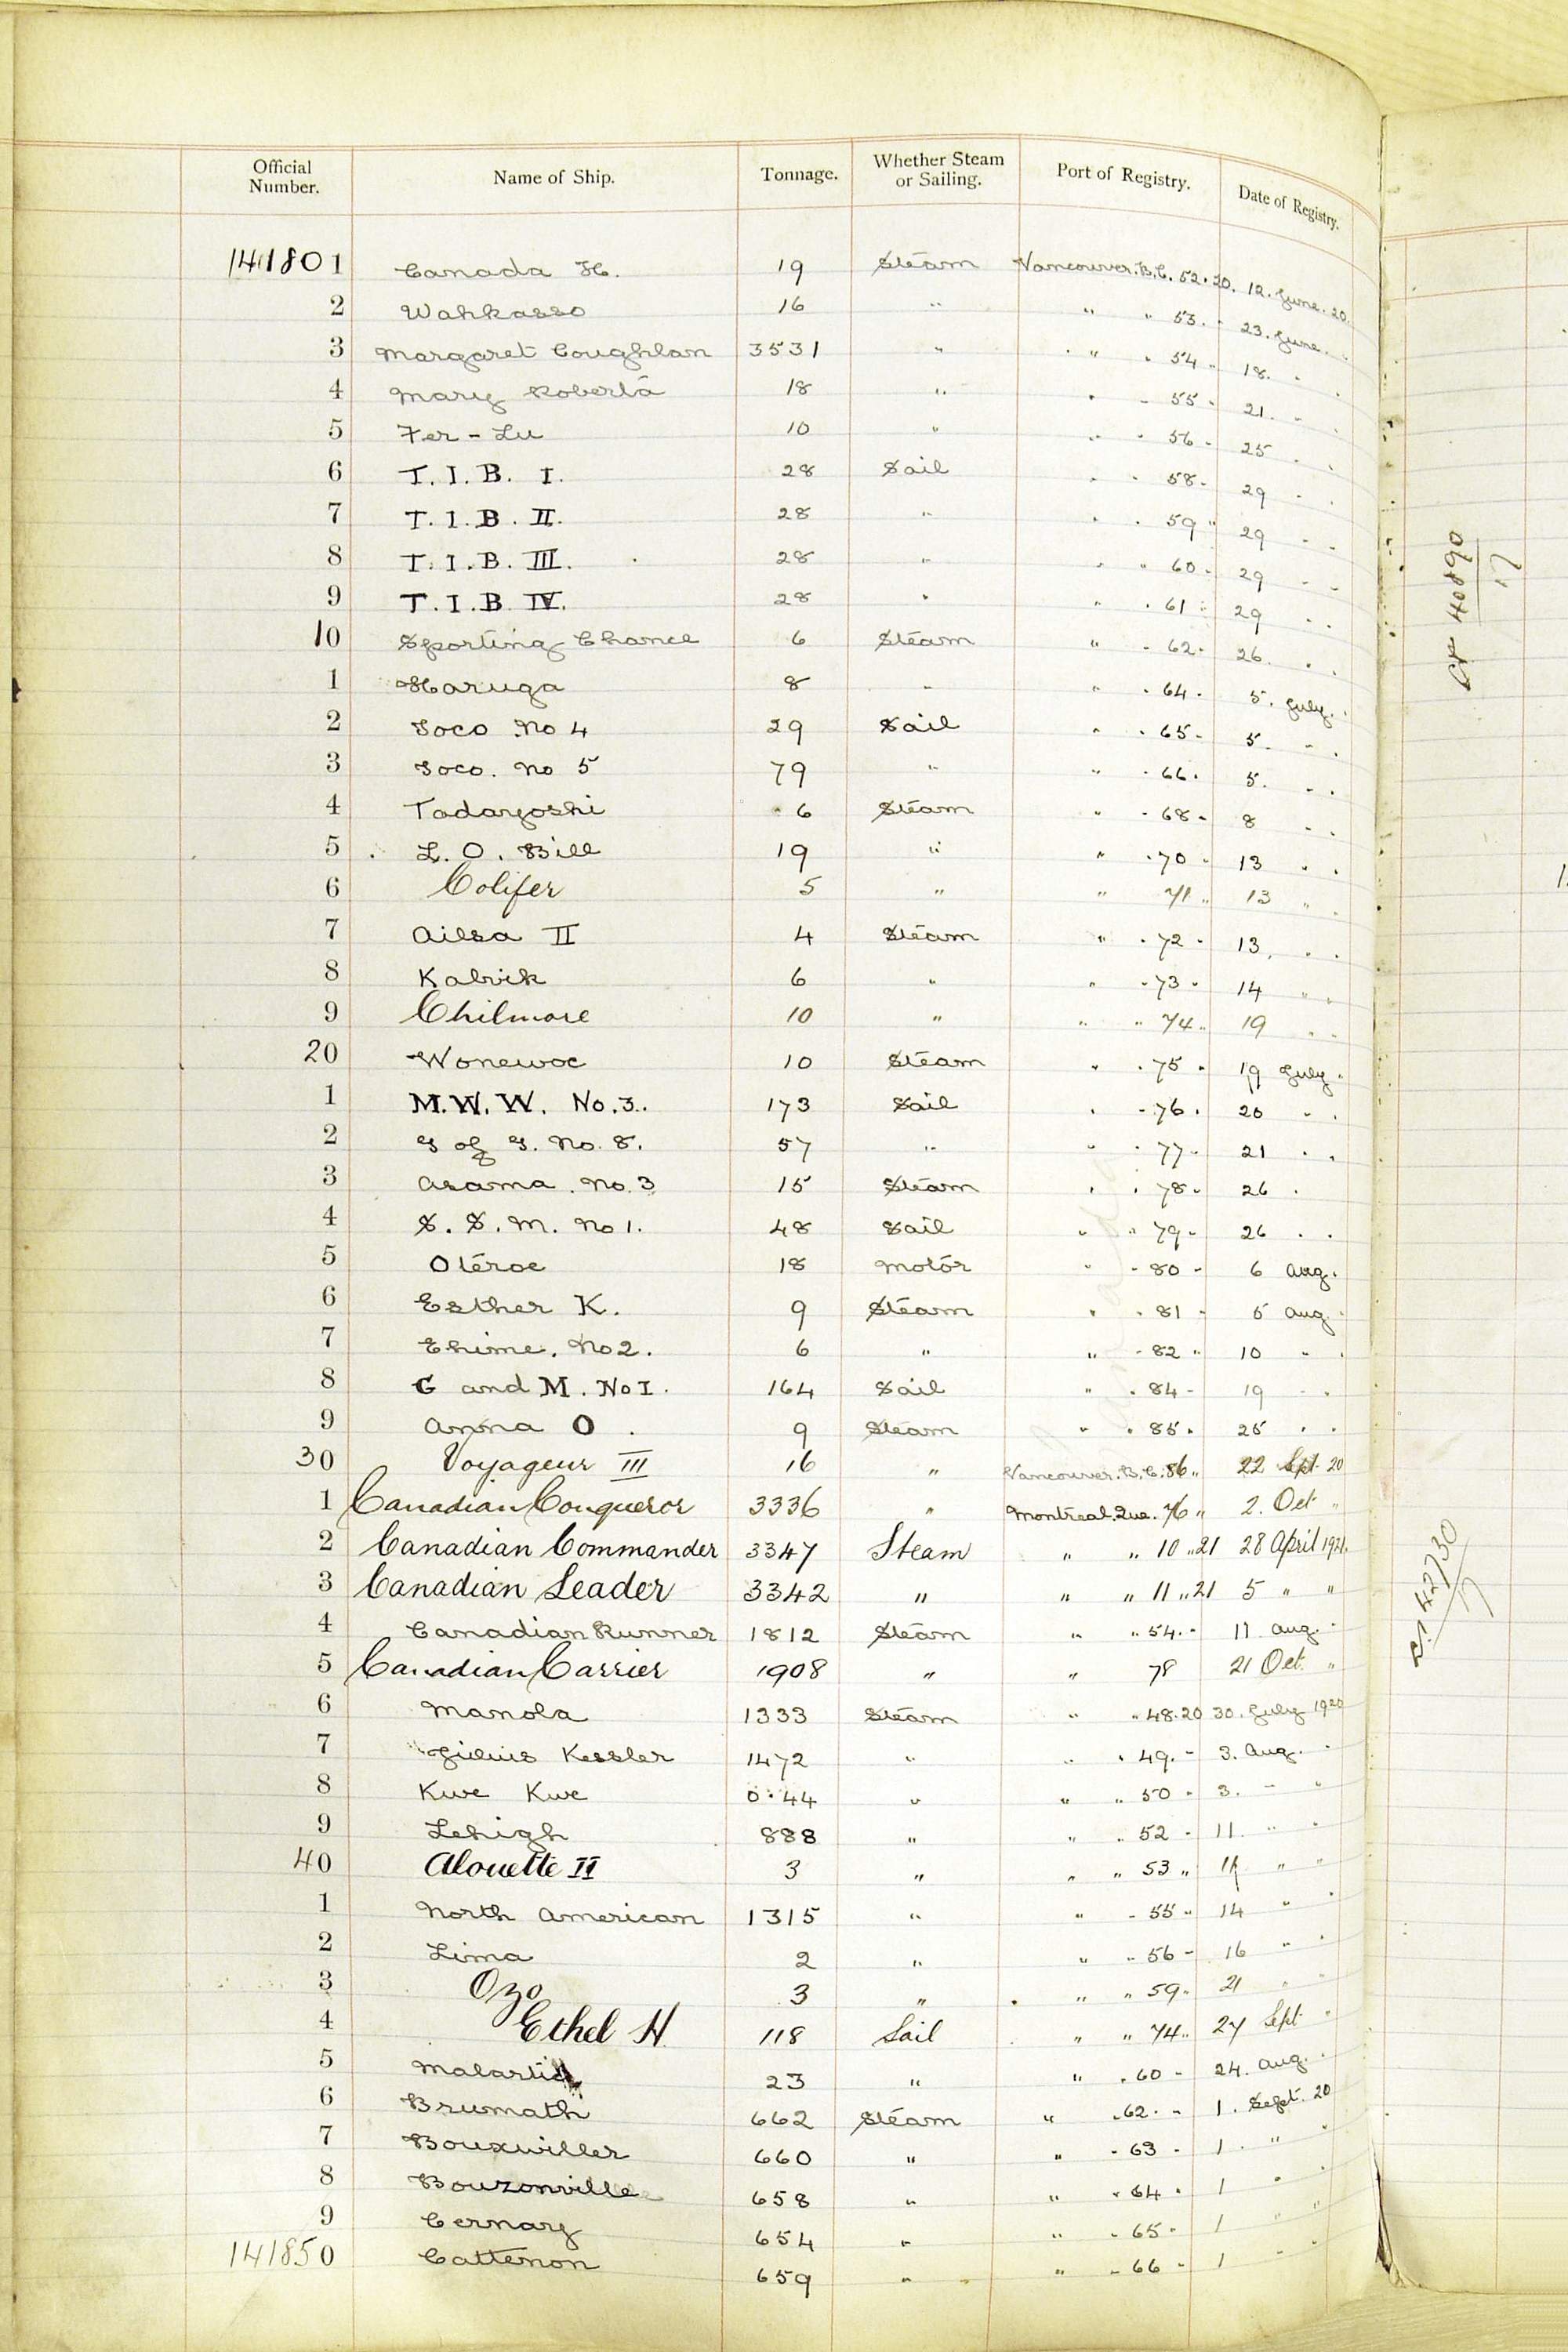 Official Number. Name of Ship. Tonnage. Whether Steam or Sailing. Port of Registry. Date of Registry.
141801 Canada H. 19 Steam Vancouver. B.C. 52. 20. 12. June. 20.
2 Wahkasso 16 " " " 53. " 23. June. "
3 Margaret Coughlan 3531 " " " 54 " 18. " "
4 Mary Roberta 18 " " " 55 " 21. " "
5 Fer-Lu 10 " " " 56 " 25 " "
6 T.I.B. I. 28 Sail " " 58 " 29 " "
7 T.I.B. II. 28 " " " 59 " 29 " "
8 T.I.B. III. 28 " " " 60 " 29 " "
9 T.I.B. IV. 28 " " " 61 " 29 " "
10 Sporting Chance 6 Steam " " 62 " 26. " "
1 Haruga 8 " " " 64 " 5. July. "
2 Soco No 4 29 Sail " " 65 " 5. " "
3 Soco. No 5 79 " " " 66 " 5. " "
4 Tadayoshi 6 Steam " " 68 " 8 " "
5 L. O. Bill 19 " " " 70 " 13 " "
6 Colifer 5 " " 71 " 13 " "
7 Ailsa II 4 Steam " " 72 " 13. " "
8 Kalvik 6 " " " 73 " 14 " "
9 Chilmore 10 " " " 74 " 19 " "
20 Wonewoc 10 Steam " " 75 " 19 July "
1 M.W.W. No. 3. 173 Sail " " 76 " 20 " "
2 G of G. No. 8. 57 " " " 77 " 21 " "
3 Asama. No. 3 15 Steam " " 78 " 26 "
4 S. S. M. No 1. 48 Sail " " 79 " 26 " "
5 Oteroe 18 Motor " " 80 " 6 Aug. 
6 Esther K. 9 Steam " " 81 " 5 Aug "
7 Ehime. No 2. 6 " " " 82 " 10 " "
8 G and M. No I. 164 Sail " " 84 " 19 " "
9 Anna O. 9 Steam " " 85 " 25 " "
30 Voyageur III 16 " Vancouver. B.C. 86 " 22 Sept 20
1 Canadian Conqueror 3336 " Montreal. Que. 76 " 2. Oct "
2 Canadian Commander 3347 Steam " " 10 " 21 28 April 1921.
3 Canadian Leader 3342 " " " 11 " 21 5 " "
4 Canadian Runner 1812 Steam " " 54. " 11 Aug. "
5 Canadian Carrier 1908 " " 78 21 Oct. "
6 Manola 1333 Steam " " 48. 20 30. July 1920
7 Kessler 1472 " " " 49. " 3. Aug. "
8 Kwe Kwe 0.44 " " " 50 " 3. " "
9 Lehigh 888 " " " 52 " 11. " "
40 Alouette II 3 " " " 53 " " "
1 North American 1315 " " " 55 " 14 " "
2 Lima 2 " " " 56 " 16 " "
3 Ozo 3 " " " 59 " 21 " "
4 Ethel H. 118 Sail " " 74 " 27 Sept "
5 Malartic 23 " " " 60 " 24. Aug. "
6 Brumath 662 Steam " " 62. " 1. Sept. 20
7 Bouxwiller 660 " " " 63 " 1. " "
8 Bouzonville 658 " " " 64 " 1 " "
9 Cernay 654 " " " 65 " 1 " "
141850 Cattenon 659 " " " 66 " 1 " "
40890
17
42730
17